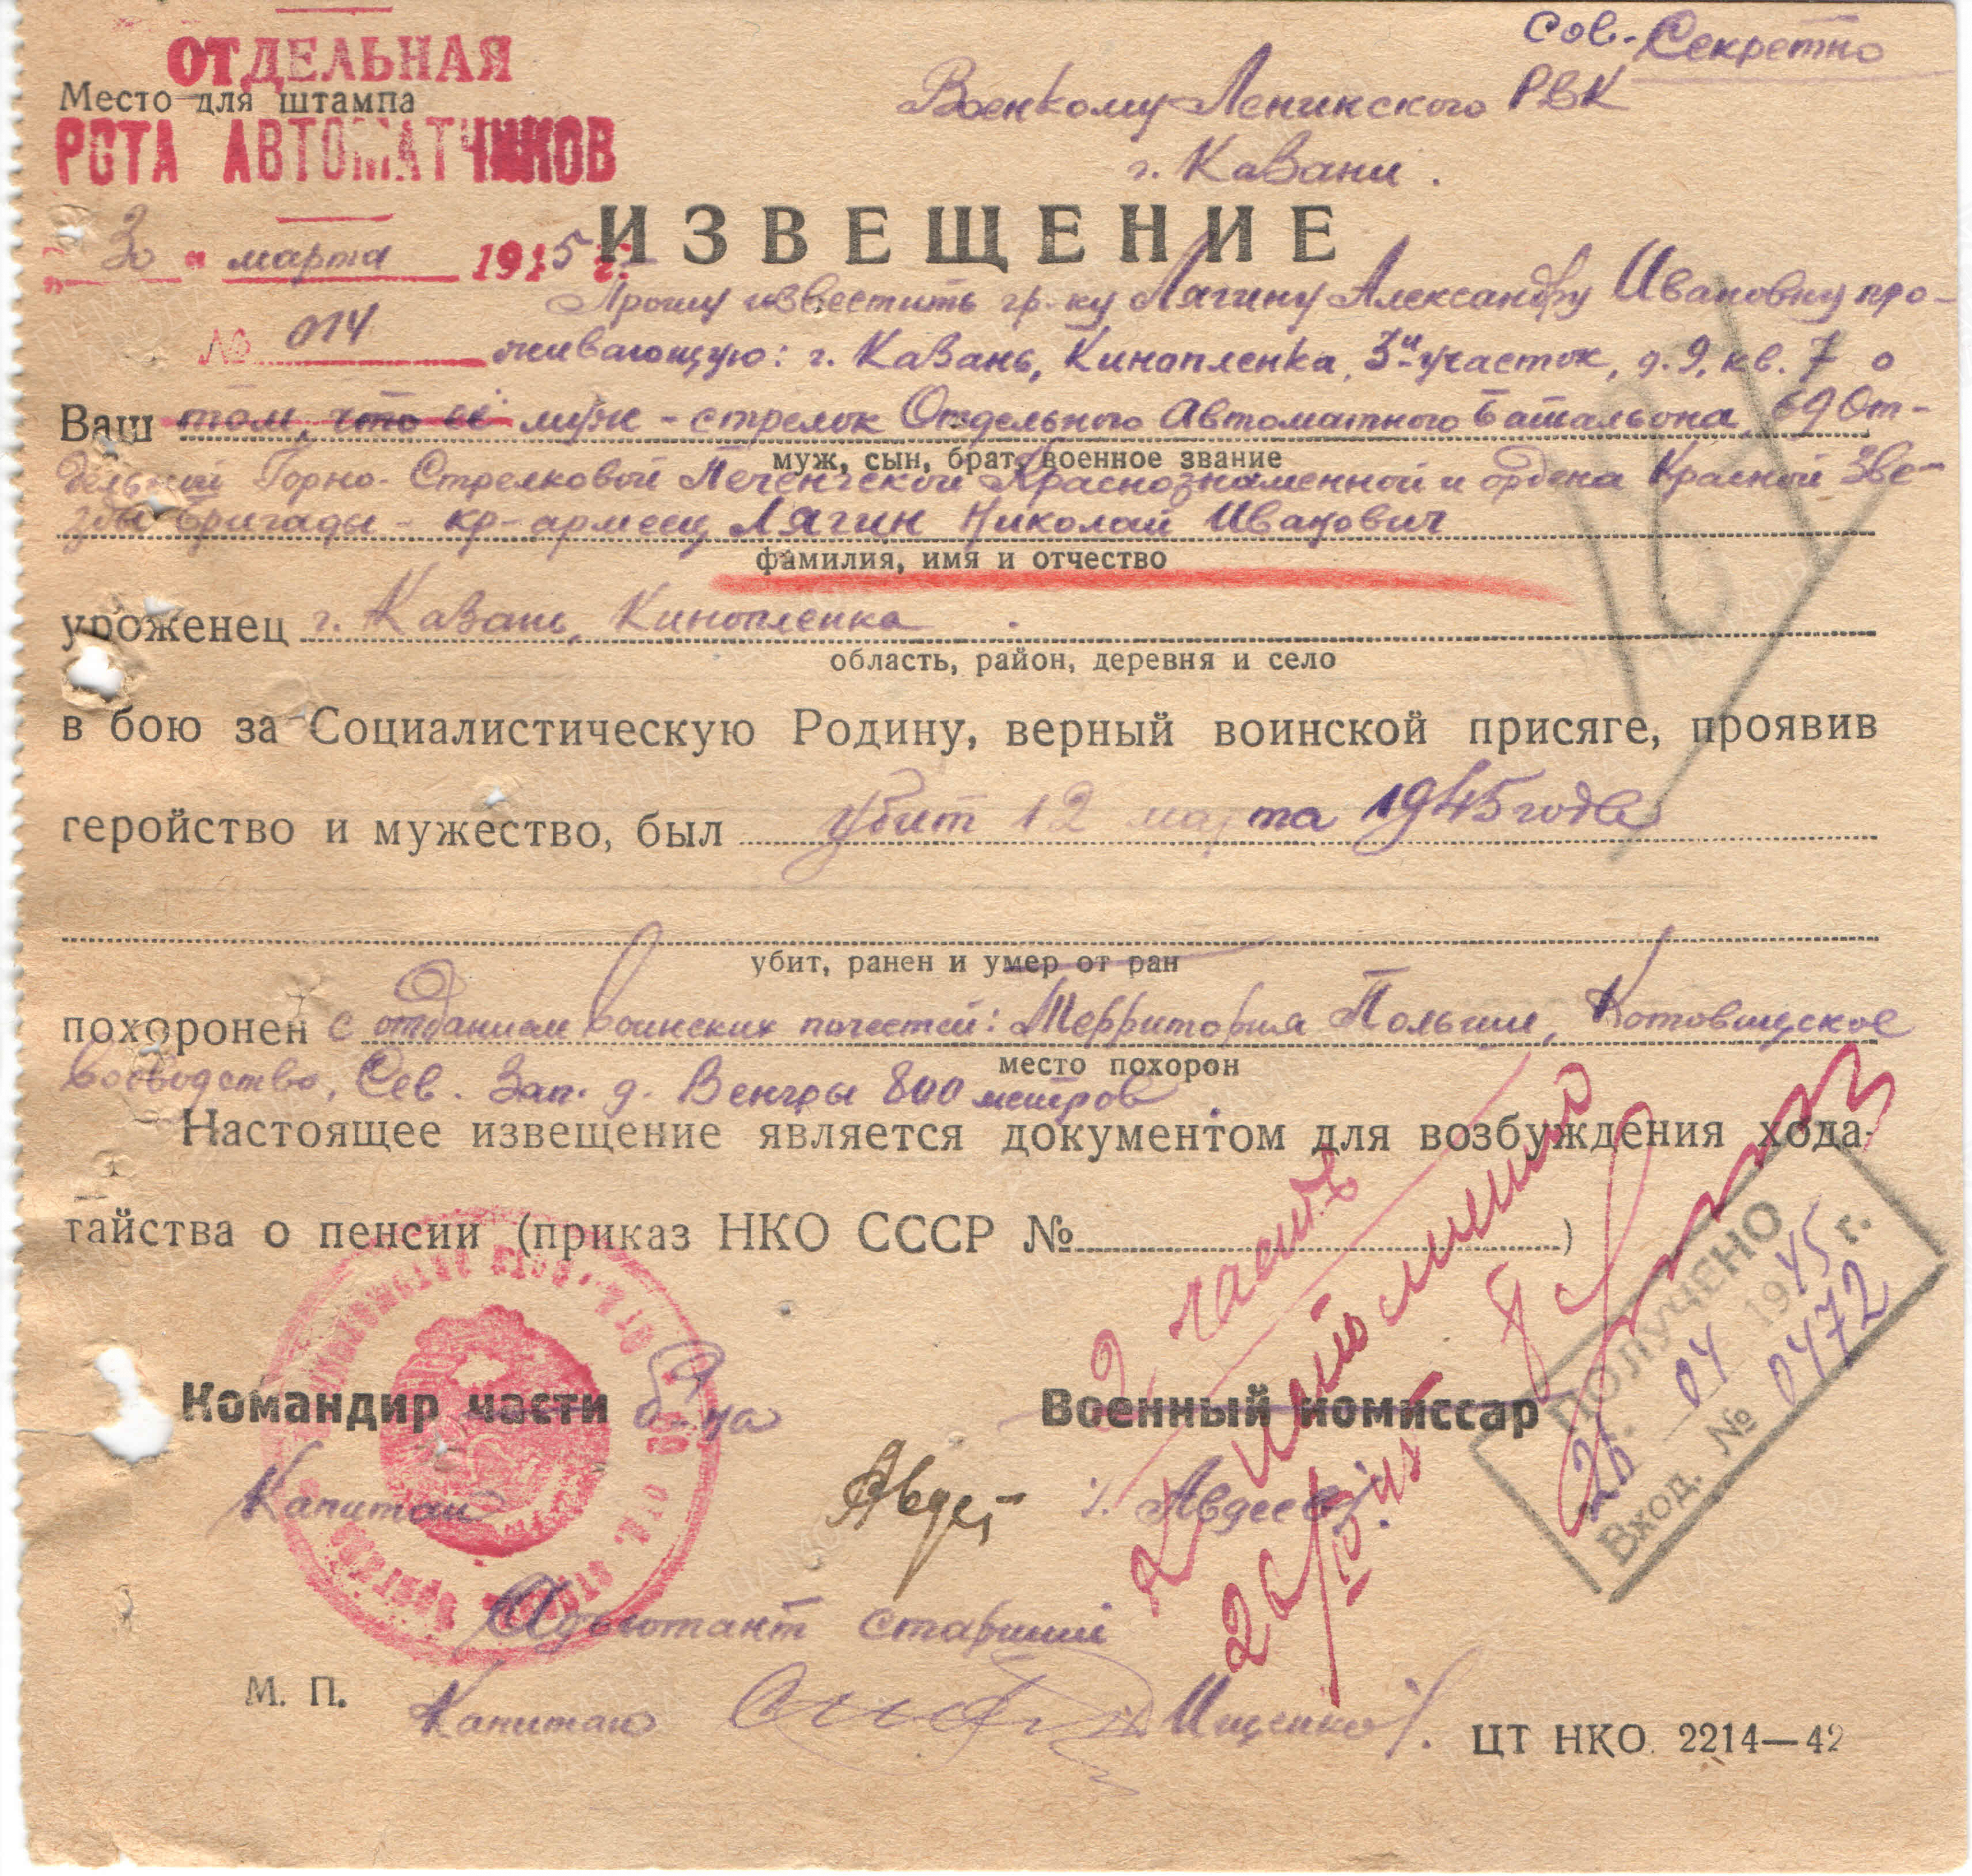 Сов. Секретно
ОТДЕЛЬНАЯ
Место для штампа
РОТА АВТОМАТЧИКОВ
Военкому Ленинского РВК
г. Казани.
ИЗВЕЩЕНИЕ
"30" марта 1945 г.
Прошу известить гр-ку Лягину Александру Ивановну про-
№ 014 живающую: г. Казань, Кинопленка, 3й участок, д. 9, кв. 7 о
Ваш том, что её муж - стрелок Отдельного Автоматного Батальона, 69 От-
муж, сын, брат, военное звание
дельной Горно-Стрелковой Печенгской Краснознаменной и ордена Красной Зве-
зды бригады - кр-армеец Лягин Николай Иванович
фамилия, имя и отчество
уроженец г. Казань, Кинопленка.
область, район, деревня и село
в бою за Социалистическую Родину, верный воинской присяге, проявив
геройство и мужество, был убит 12 марта 1945 года
убит, ранен и умер от ран
похоронен с отданием воинских почестей: Территория Польши, Котовицское
место похорон
воеводство, Сев. Зап. д. Венгры 800 метров
Настоящее извещение является документом для возбуждения хода-
тайства о пенсии (приказ НКО СССР №)
2 часть
ПОЛУЧЕНО
26. 04 1945 г.
Вход. № 0472
Командир части б-на
Военный комиссар
Капитан Авдеев
Адъютант старший
М. П.
Капитан Ищенко
ЦТ НКО 2214—42